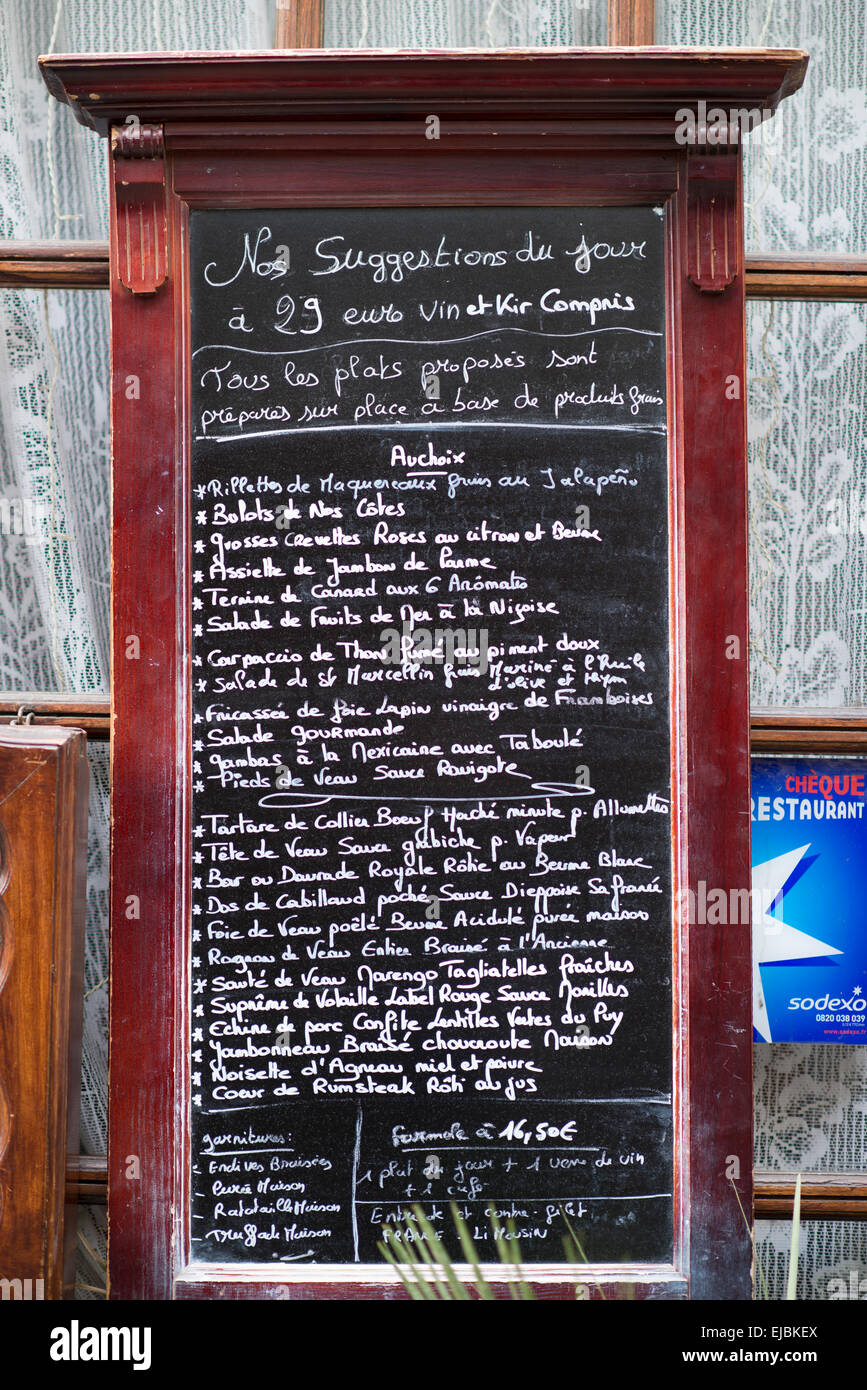 Nos Suggestions du jour
à 29 euro vin et Kir Compris
Tous les plats proposés sont
préparés sur place a base de produits frais
Au choix
*Rillettes de Maquereaux frais au Jalapeño
* Bulots de Nos Côtes
* Grosses Crevettes Roses au citron et Beurre
* Assiette de Jambon de Parme
* Terrine de Canard aux 6 Arômates
* Salade de Fruits de Mer à la Niçoise
* Carpaccio de Thon fumé au piment doux
* Salade de St Marcellin frais Mariné à l'Huile
d'olive et thym
* Fricassée de foie Lapin vinaigre de Framboises
* Salade gourmande
* Gambas à la Mexicaine avec Taboulé
* Pieds de Veau Sauce Ravigote
* Tartare de Collier Boeuf Haché minute p. Allumettes
* Tête de Veau Sauce gribiche p. Vapeur
* Bar ou Daurade Royale Rôtie au Beurre Blanc
* Dos de Cabillaud poché Sauce Dieppoise Safranée
* Foie de Veau poêlé Beurre Acidulé purée maison
* Rognon de Veau Entier Braisé à l'Ancienne
* Sauté de Veau Marengo Tagliatelles fraîches
* Suprême de Volaille Label Rouge Sauce Morilles
* Echine de porc Confite Lentilles Vertes du Puy
* Jambonneau Braisé choucroute Maison
* Noisette d'Agneau miel et poivre
* Coeur de Rumsteak Rôti au jus
garnitures :
- Endives Braisées
- Purée Maison
- Ratatouille Maison
- Truffade Maison
formule à 16,50€
1 plat du jour + 1 verre de vin
+ 1 café
Entrecôte et contre-filet
FRANCE Limousin
CHÈQUE
RESTAURANT
sodexo
0820 038 039
www.sodexo.fr
alamy
Image ID: EJBKEX
www.alamy.com